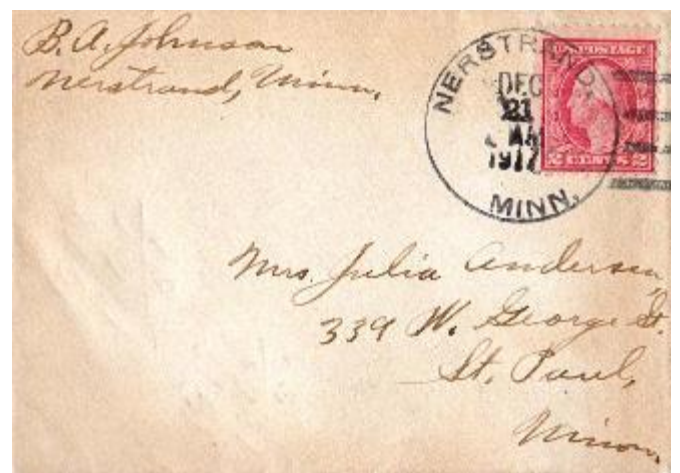 B. A. Johnson
Nerstrand, Minn.
NERSTRAND,
DEC
21
AM
1917
MINN.
U.S. POSTAGE
2 CENTS 2
Mrs. Julia Andersen,
339 W. George St.
St. Paul,
Minn.